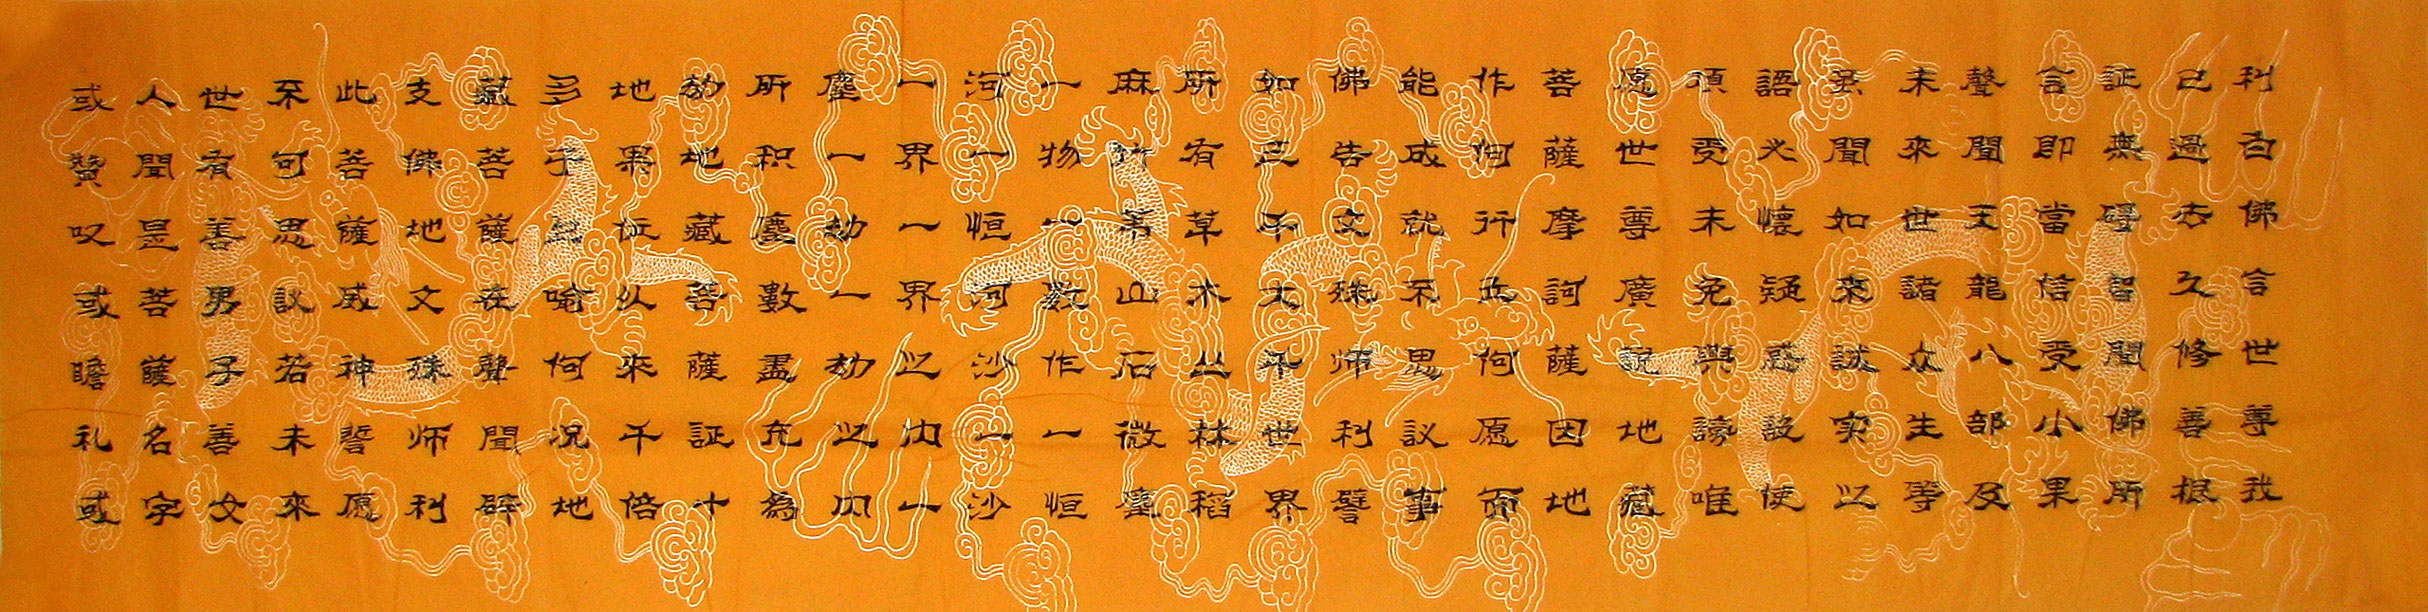 利白佛言世尊我
已過去久修善根
証無碍智聞佛所
言即當信受小果
聲聞天龍八部及
未來世諸众生等
虽聞如來誠实之
語必懷疑惑設使
頂受未免興謗唯
愿世尊廣說地藏
菩薩摩訶薩因地
作何行立何愿而
能成就不思议事
佛告文殊师利譬
如三千大千世界
所有草木丛林稻
麻竹苇山石微塵
一物一数作一恒
河一恒河沙一沙
一界一界之内一
塵一劫一劫之内
所积塵數盡充為
劫地藏菩薩証十
地果位以來千倍
多于上喻何况地
藏菩薩在聲聞辟
支佛地文殊师利
此菩薩威神誓愿
不可思议若未來
世有善男子善女
人聞是菩薩名字
或赞叹或瞻礼或